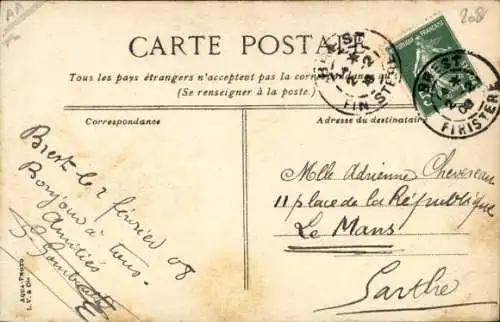 AA
208
CARTE POSTALE
Tous les pays étrangers n'acceptent pas la correspondance au
(Se renseigner à la poste.)
BREST
FINISTERE
BREST
FINISTERE
Correspondance
Adresse du destinataire
Brest le 2 février 08
Bonjour à tous.
Amitiés
Mlle Adrienne Chevereau
11 place de la République
Le Mans
Sarthe
AQUA-PHOTO
L. V. & Cie